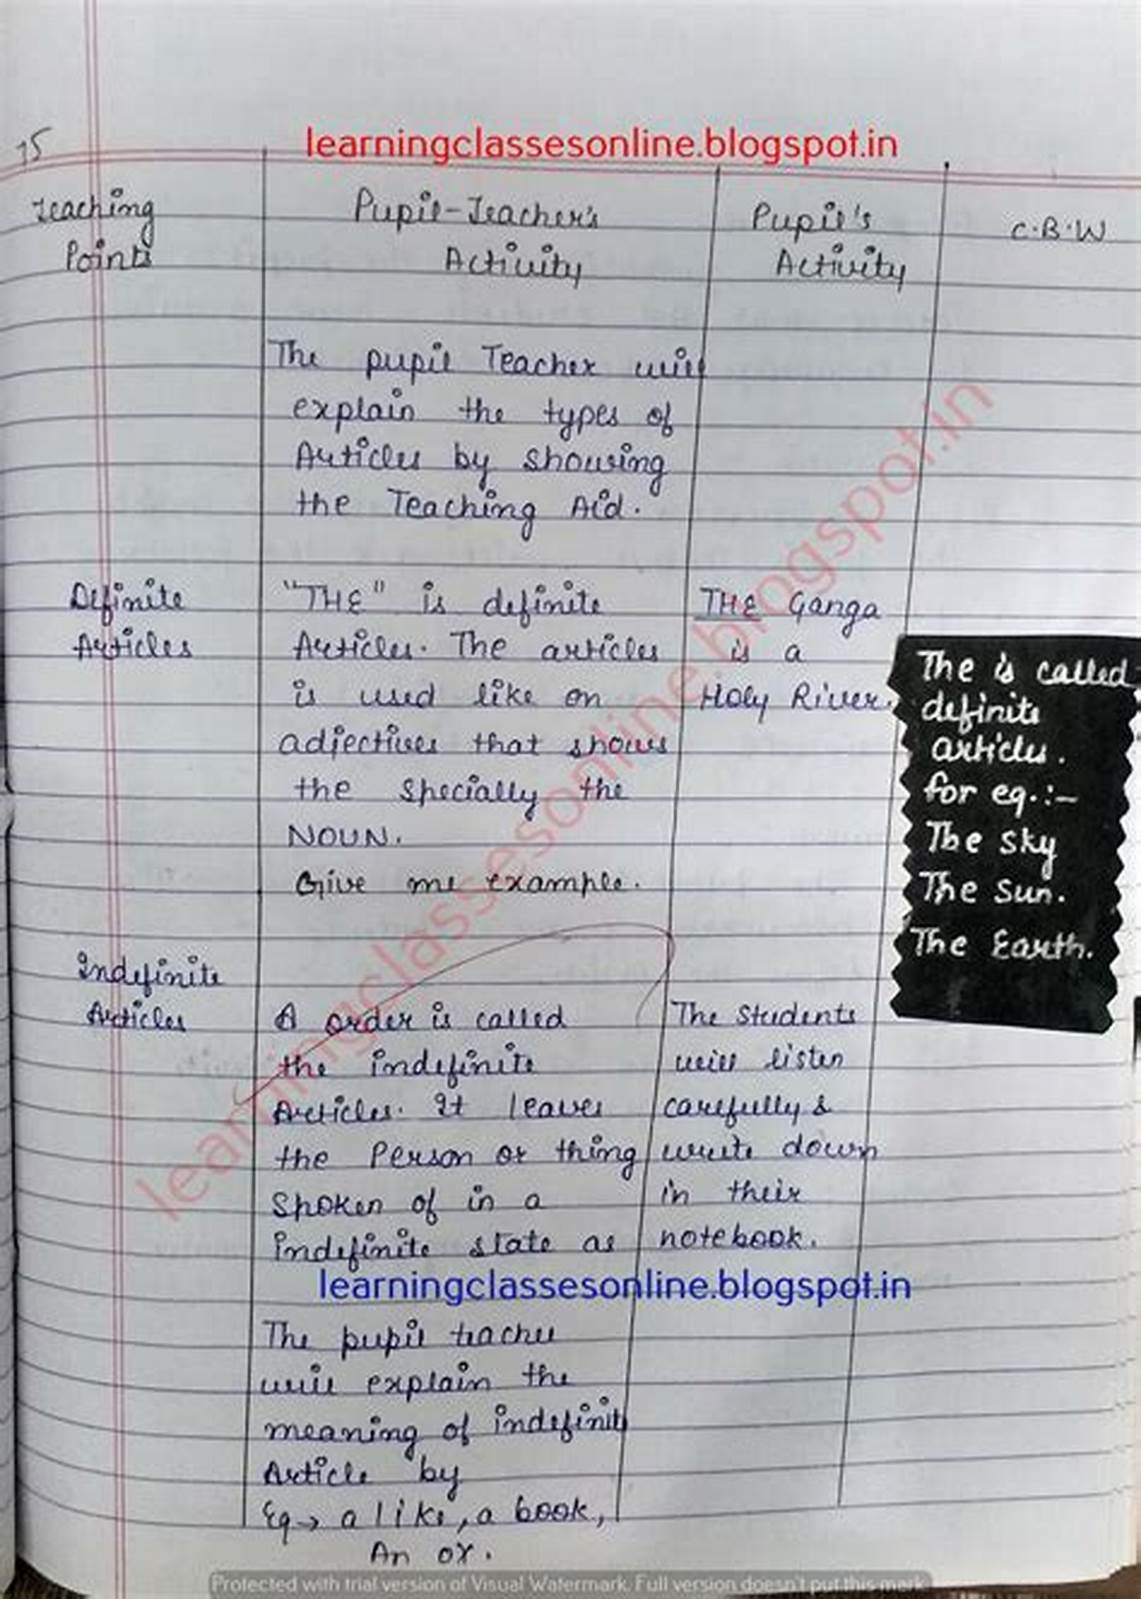 15
learningclassesonline.blogspot.in
Teaching Points
Pupil-Teacher's Activity
Pupil's Activity
C.B.W
The pupil Teacher will
explain the types of
Articles by showing
the Teaching Aid.
Definite
Articles
"THE" is definite
Articles. The articles
is used like on
adjectives that shows
the specially the
NOUN.
Give me example.
THE Ganga
is a
Holy River.
The is called
definite
articles.
for eg.:-
The sky
The sun.
The Earth.
Indefinite
Articles
A order is called
the indefinite
Articles. It leaves
the Person or thing
spoken of in a
indefinite state as
The Students
will listen
carefully &
write down
in their
notebook.
learningclassesonline.blogspot.in
The pupil teacher
will explain the
meaning of indefinite
Article by
Eg→ a like, a book,
An ox.
learningclassesonline.blogspot.in
Protected with trial version of Visual Watermark. Full version doesn't put this mark.